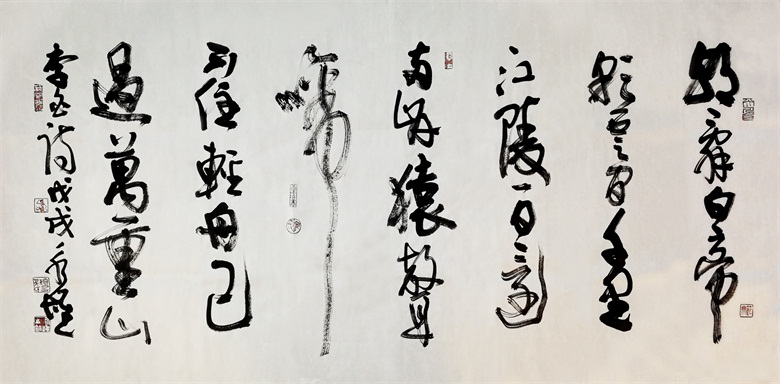 朝辭白帝
彩雲間千里
江陵一日還
兩岸猿聲
啼
不住輕舟已
過萬重山
李白詩戊戌